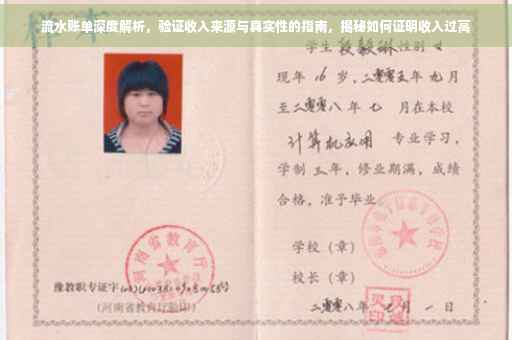 流水账单深度解析，验证收入来源与真实性的指南，揭秘如何证明收入过高
样本
学生段毅琳性别女
现年16岁，二零零五年九月
至二零零八年七月在本校
计算机应用 专业学习，
学制三年，修业期满，成绩
合格，准予毕业。
学校（章）
校长（章）
河南省教育厅
豫教职专证字
（河南省教育厅验印）
二零零八年七月一日